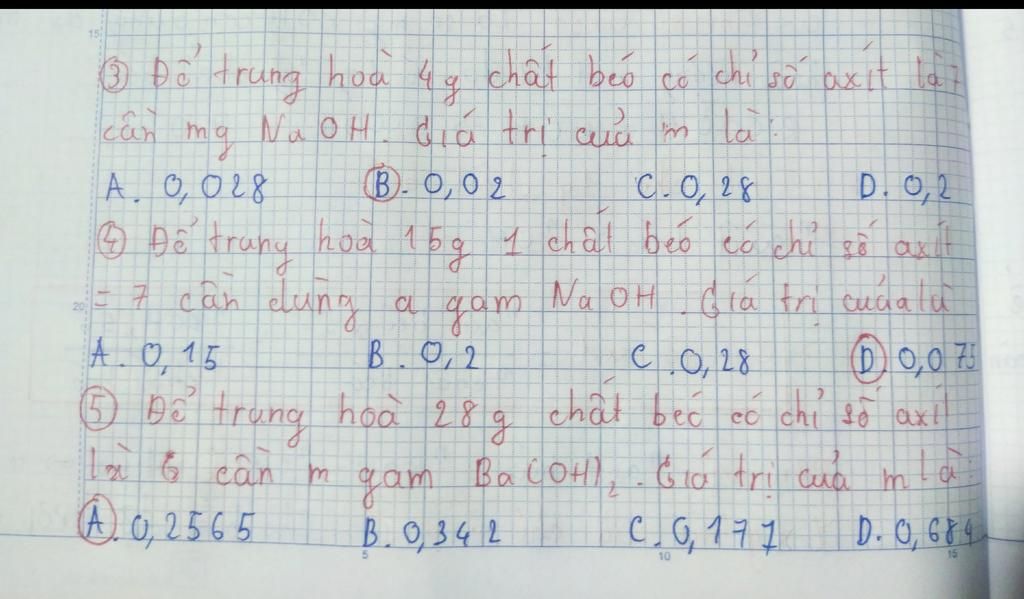 15
③ Để trung hoà 4g chất béo có chỉ số axít là 7
cần mg NaOH. Giá trị của m là:
A. 0,028 B. 0,02 C. 0,28 D. 0,2
④ Để trung hoà 15g 1 chất béo có chỉ số axít
20 = 7 cần dùng a gam NaOH. Giá trị của a là
A. 0,15 B. 0,2 C. 0,28 D 0,075
⑤ Để trung hoà 28g chất béo có chỉ số axít
là 6 cần m gam Ba(OH)₂. Giá trị của m là:
A. 0,2565 B. 0,342 C. 0,177 D. 0,684
5 10 15